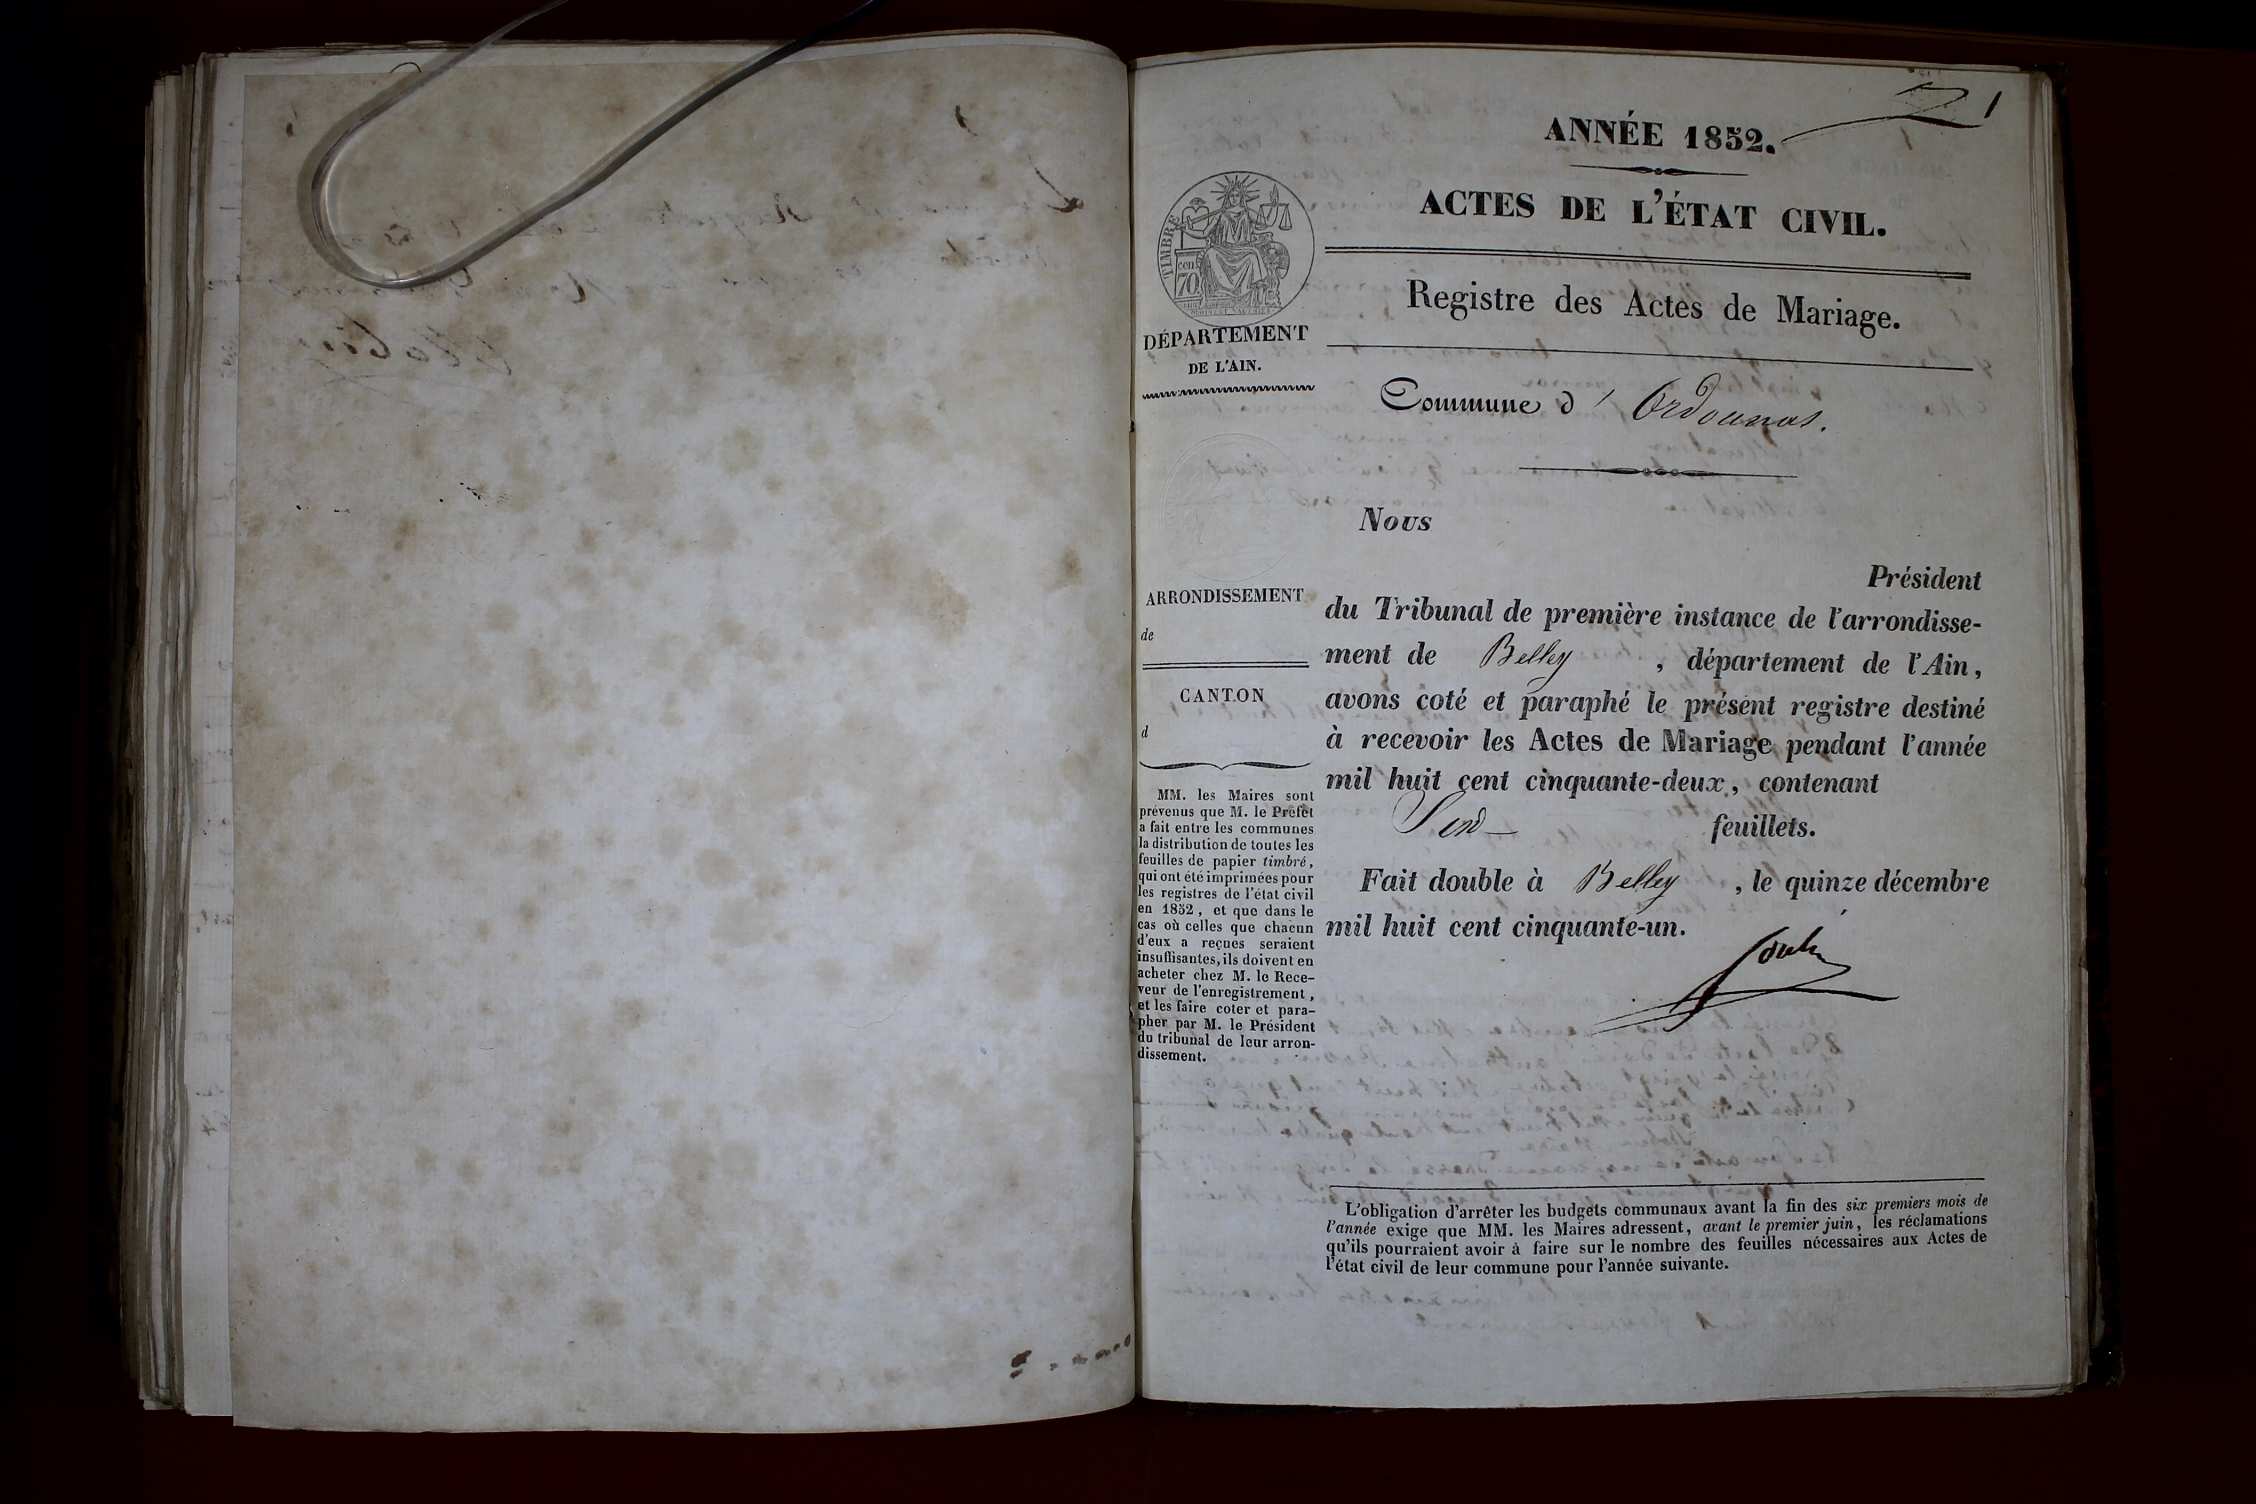 1
ANNÉE 1852.
ACTES DE L'ÉTAT CIVIL.
Registre des Actes de Mariage.
Commune d' Ordonnas.
TIMBRE
cen
70
DÉPARTEMENT
DE L'AIN.
ARRONDISSEMENT
de
CANTON
d
MM. les Maires sont
prévenus que M. le Préfet
a fait entre les communes
la distribution de toutes les
feuilles de papier timbré,
qui ont été imprimées pour
les registres de l'état civil
en 1852, et que dans le
cas où celles que chacun
d'eux a reçues seraient
insuffisantes, ils doivent en
acheter chez M. le Rece-
veur de l'enregistrement,
et les faire coter et para-
pher par M. le Président
du tribunal de leur arron-
dissement.
Nous
Président
du Tribunal de première instance de l'arrondisse-
ment de Belley, département de l'Ain,
avons coté et paraphé le présent registre destiné
à recevoir les Actes de Mariage pendant l'année
mil huit cent cinquante-deux, contenant
feuillets.
Fait double à Belley, le quinze décembre
mil huit cent cinquante-un.
L'obligation d'arrêter les budgets communaux avant la fin des six premiers mois de
l'année exige que MM. les Maires adressent, avant le premier juin, les réclamations
qu'ils pourraient avoir à faire sur le nombre des feuilles nécessaires aux Actes de
l'état civil de leur commune pour l'année suivante.